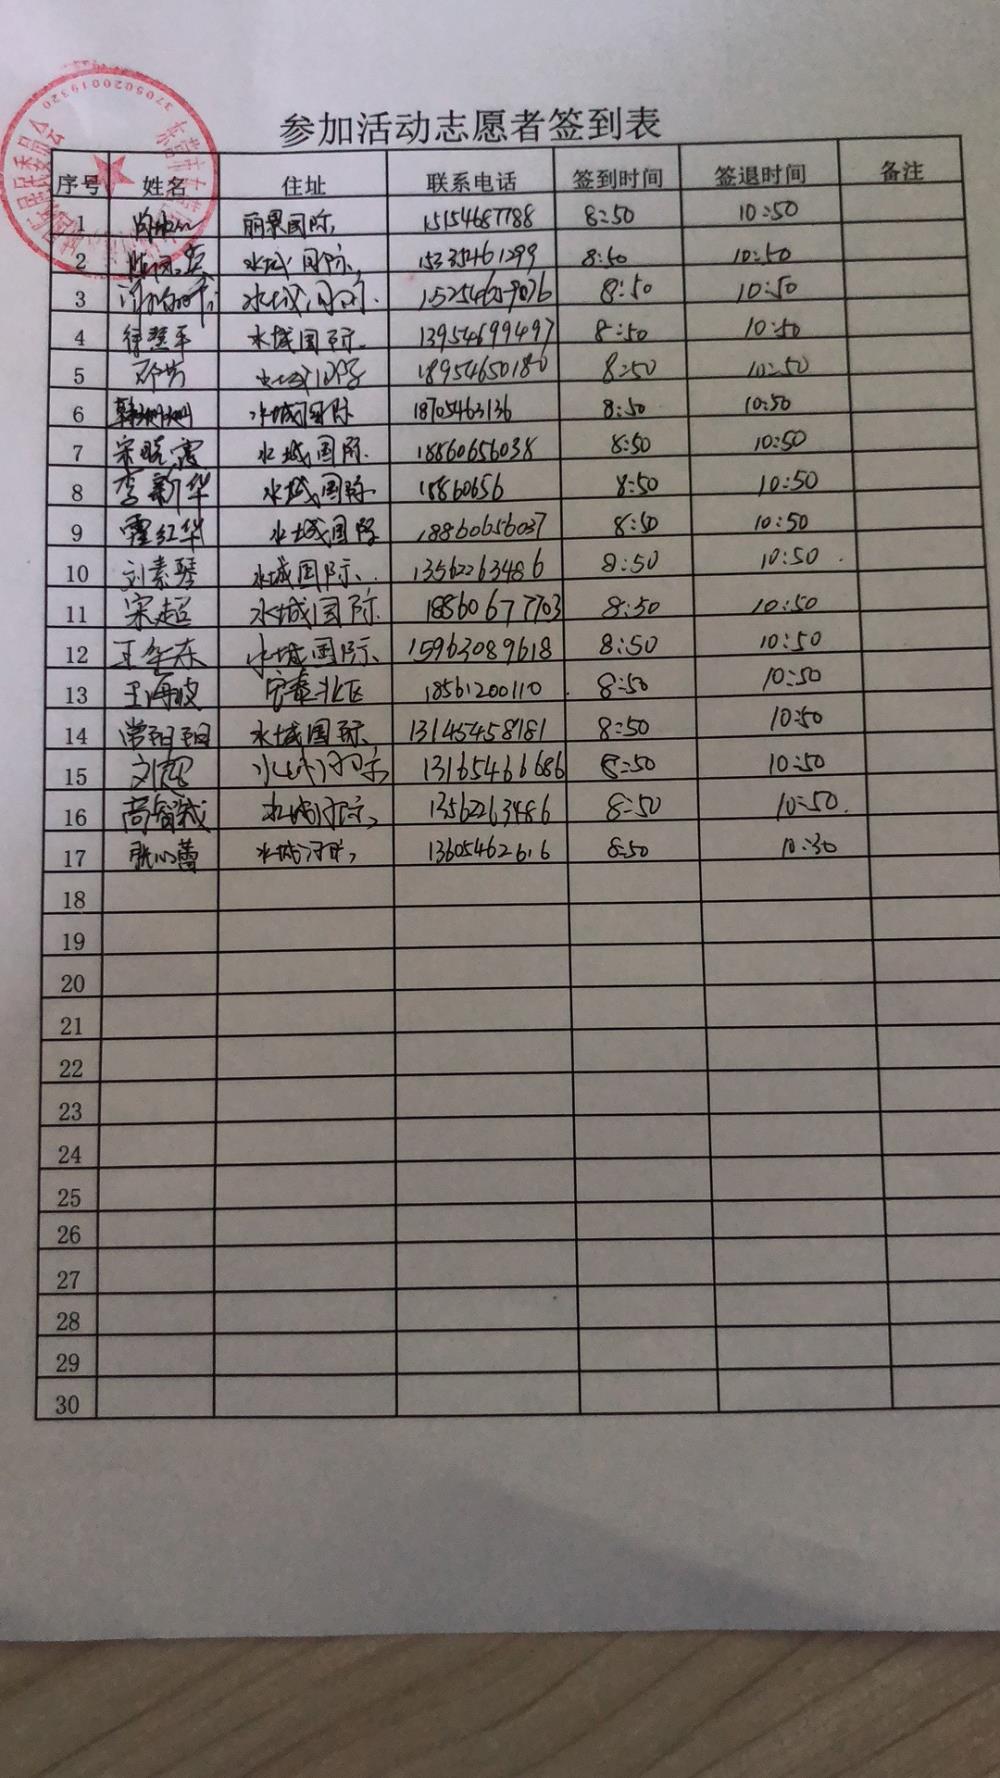 3705020019320
参加活动志愿者签到表
序号 姓名 住址 联系电话 签到时间 签退时间 备注
1 丽景国际 15154687788 8:50 10:50
2 水城国际 15335461299 8:50 10:50
3 水城国际 8:50 10:50
4 徐慧平 水城国际 13954699497 8:50 10:50
5 水城国际 18954650180 8:50 10:50
6 韩姗姗 水城国际 18705463136 8:50 10:50
7 宋晓霞 水城国际 18860656038 8:50 10:50
8 李新华 水城国际 18860656 8:50 10:50
9 霍红华 水城国际 18860656037 8:50 10:50
10 刘素琴 水城国际 13562263486 8:50 10:50
11 宋超 水城国际 18860677703 8:50 10:50
12 王华东 水城国际 15963089618 8:50 10:50
13 王海波 安泰北区 18561200110 8:50 10:50
14 常阳阳 水城国际 13145458181 8:50 10:50
15 水城国际 13165466686 8:50 10:50
16 高智诚 水城国际 13562263486 8:50 10:50
17 张心蕾 水城国际 13605462616 8:50 10:30
18
19
20
21
22
23
24
25
26
27
28
29
30